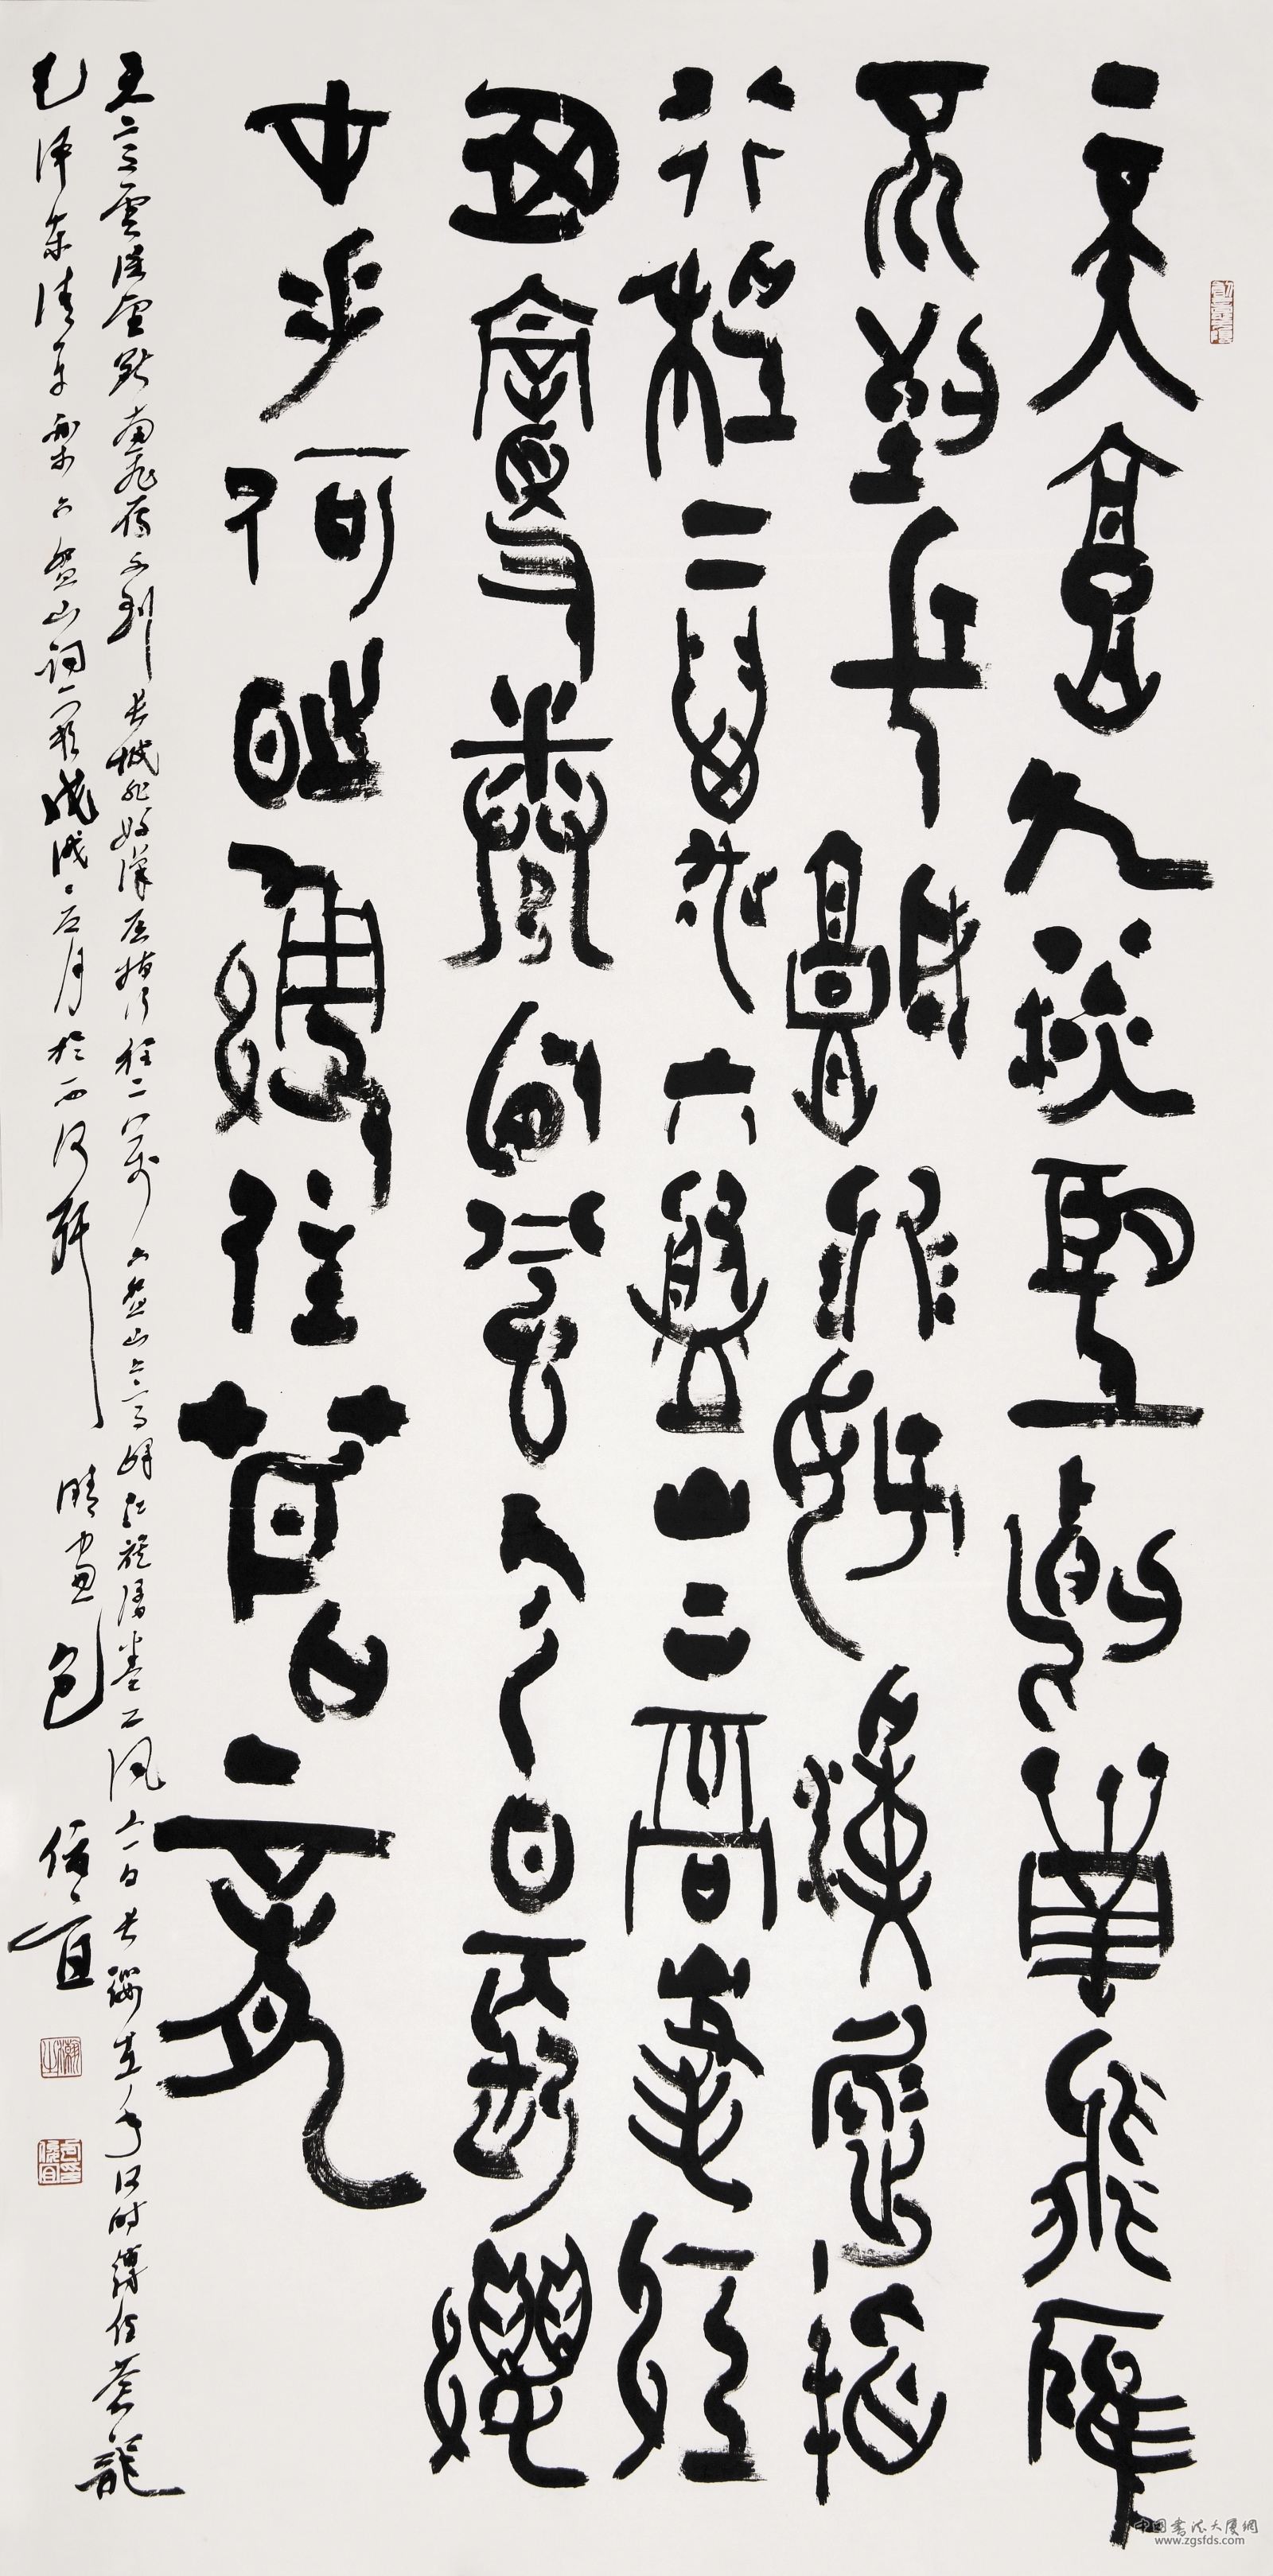 天高雲淡望斷南飛雁
不到長城非好漢屈指
行程二萬六盤山上高峰紅
旗漫卷西風今日長纓
在手何時縛住蒼龍
天高雲淡望斷南飛雁不到長城非好漢屈指行程二萬六盤山上高峰紅旗漫卷西風今日長纓在手何時縛住蒼龍
毛澤東清平樂六盤山詞一首戊戌五月於西河軒晴窗包俊宜
中国书法大厦网
www.zgsfds.com